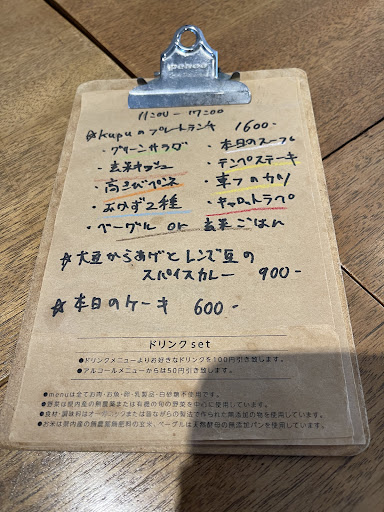 11:00 - 17:00
☆kupuのプレートランチ 1600-
・グリーンサラダ ・本日のスープ
・玄米キッシュ ・テンペステーキ
・高きびペンネ ・車フのカツ
・おかず2種 ・キャロットラペ
・ベーグル or 玄米ごはん
☆大豆からあげとレンズ豆の
スパイスカレー 900-
☆本日のケーキ 600-
ドリンクset
●ドリンクメニューよりお好きなドリンクを100円引き致します。
●アルコールメニューからは50円引き致します。
●menuは全てお肉・お魚・卵・乳製品・白砂糖不使用です。
●野菜は県内産の無農薬または有機の旬の野菜を中心に使用しています。
●食材・調味料はオーガニックまたは昔ながらの製法で作られた無添加の物を使用しています。
●お米は県内産の無農薬無肥料の玄米、ベーグルは天然酵母の無添加パンを使用しています。